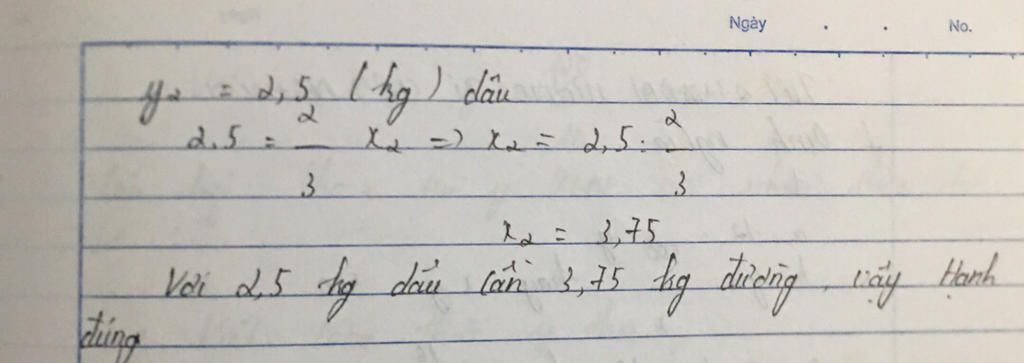 Ngày . . No.
y₂ = 2,5 (kg) dâu
2,5 = 2/3 x₂ => x₂ = 2,5 : 2/3
x₂ = 3,75
Với 2,5 kg dâu cần 3,75 kg đường, vậy Hạnh
đúng